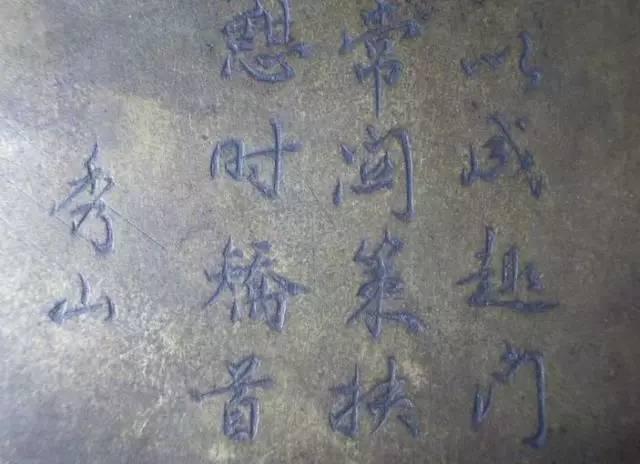 以成趣门
常関策扶
憩时矯首
秀山